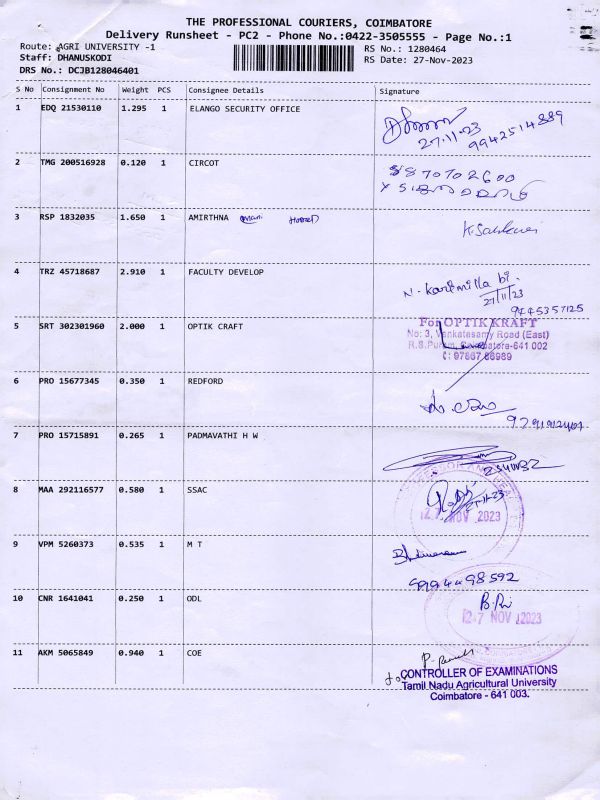 THE PROFESSIONAL COURIERS, COIMBATORE
Delivery Runsheet - PC2 - Phone No.:0422-3505555 - Page No.:1
Route: AGRI UNIVERSITY -1
RS No.: 1280464
Staff: DHANUSKODI
RS Date: 27-Nov-2023
DRS No.: DCJB128046401
S No Consignment No Weight PCS Consignee Details Signature
1 EDQ 21530110 1.295 1 ELANGO SECURITY OFFICE
27.11.23
9942514889
2 TMG 200516928 0.120 1 CIRCOT
8870702600
3 RSP 1832035 1.650 1 AMIRTHNA mani Hostel
4 TRZ 45718687 2.910 1 FACULTY DEVELOP
N. Karimilla bi.
27/11/23
9445357125
5 SRT 302301960 2.000 1 OPTIK CRAFT
For OPTIK KRAFT
No: 3, Venkatasamy Road (East)
R.S.Puram, Coimbatore-641 002
6 PRO 15677345 0.350 1 REDFORD
7 PRO 15715891 0.265 1 PADMAVATHI H W
8 MAA 292116577 0.580 1 SSAC
27-11-23
27 NOV 2023
9 VPM 5260373 0.535 1 M T
10 CNR 1641041 0.250 1 ODL
27 NOV 2023
11 AKM 5065849 0.940 1 COE
CONTROLLER OF EXAMINATIONS
Tamil Nadu Agricultural University
Coimbatore - 641 003.